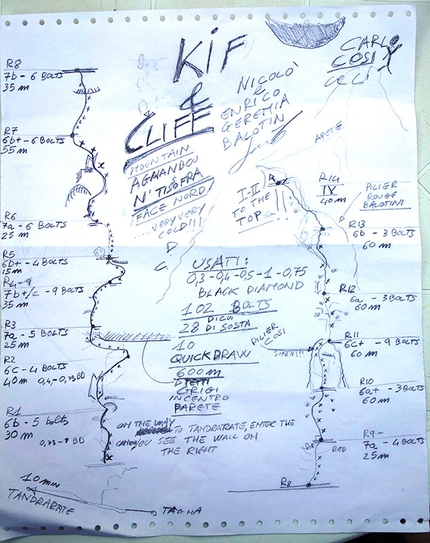 KIF
&
CLIFF
MOUNTAIN
AGMANDOU
N'TISGFRA
FACE NORD!
...VERY VERY
COLD!!!
NICOLÒ
&
ENRICO
GEREMIA
BALOTIN
CARLO
COSI
R8
7b - 6 BOLTS
35 m
R7
6b+ - 6 BOLTS
55 m
R6
7a - 6 BOLTS
25 m
R5
6b+ - 4 BOLTS
15 m
R4
7b+/c - 9 BOLTS
35 m
R3
7a - 5 BOLTS
25 m
R2
6C - 4 BOLTS
40 m
R1
6b - 5 bolts
30 m
10 MIN
TANDRARATE
TAGHIA
USATI:
0,3-0,4-0,5-1-0,75
BLACK DIAMOND
102 BOLTS
28 DI SOSTA
10
QUICKDRAW
600 m
IN CENTRO
PARETE
ON THE WAY
TO TANDRARATE, ENTER THE
YOU SEE THE WALL ON
THE RIGHT
I-II
TO THE
TOP
R14
IV
40 m
PILIER
ROUGE
BALOTINI
R13
6b - 3 BOLTS
60 m
R12
6a - 3 BOLTS
60 m
PILIER
COSI
R11
6c+ - 9 BOLTS
60 m
R10
6a+ - 3 BOLTS
60 m
R9
7a - 4 BOLTS
25 m
R8